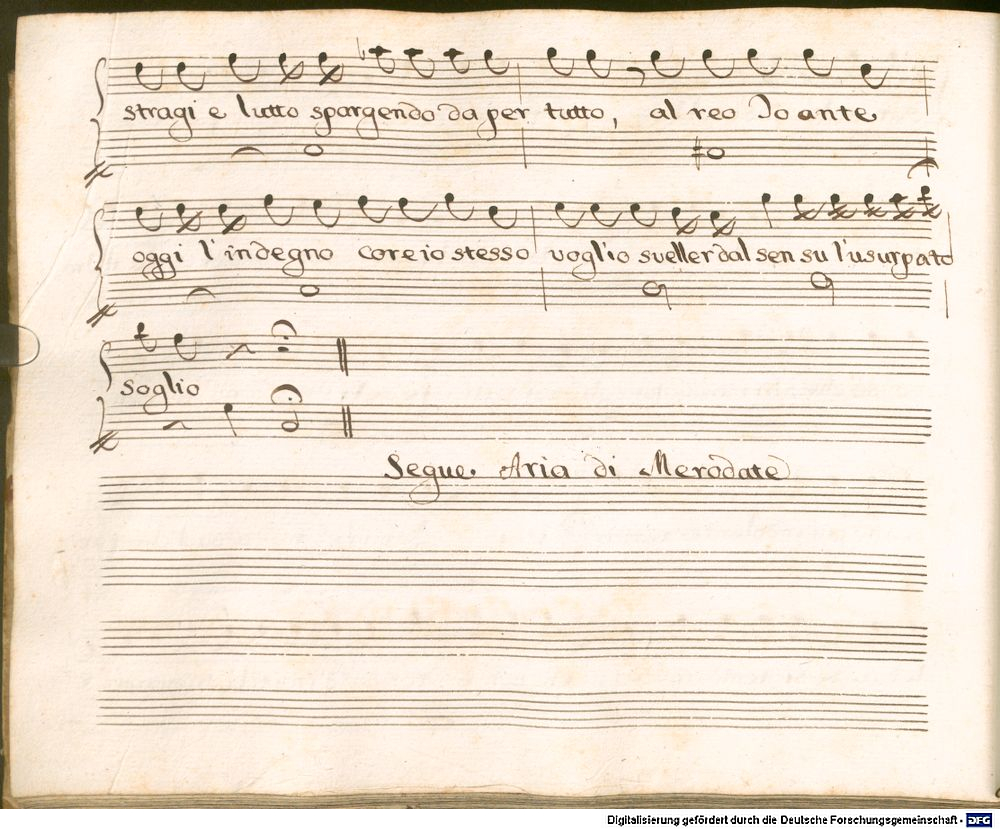 stragi e lutto spargendo da per tutto, al reo Joante
oggi l'indegno core io stesso voglio sveller dal sen su l'usurpato
soglio
Segue Aria di Merodate
Digitalisierung gefördert durch die Deutsche Forschungsgemeinschaft - DFG